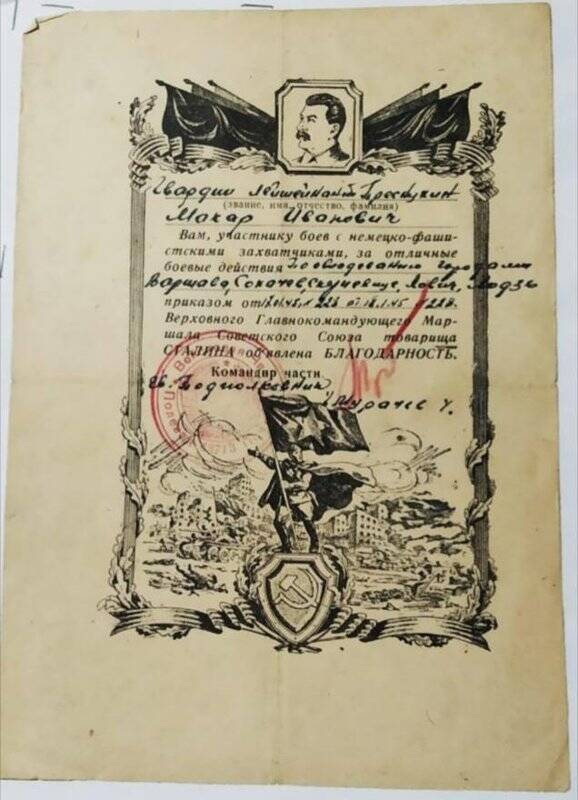 Гвардии лейтенант Проскукин
(звание, имя, отчество, фамилия)
Макар Иванович
Вам, участнику боев с немецко-фаши-
стскими захватчиками, за отличные
боевые действия по овладению городами
Варшава, Сохачев, Скерневице, Лович, Лодзь
приказом от 17.01.45 г. 223 от 19.1.45
Верховного Главнокомандующего Мар-
шала Советского Союза товарища
СТАЛИНА объявлена БЛАГОДАРНОСТЬ.
Командир части
гв. Подполковник